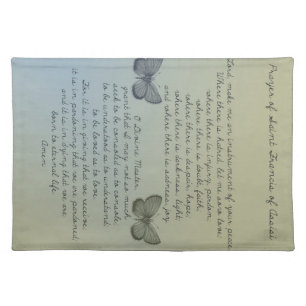 Prayer of Saint Francis of Assisi
Lord, make me an instrument of your peace
Where there is hatred, let me sow love;
where there is injury, pardon
where there is doubt, faith
where there is despair, hope;
where there is darkness, light;
and where there is sadness, joy
O Divine Master,
grant that I may not so much
seek to be consoled as to console;
to be understood as to understand
to be loved as to love
For it is in giving that we receive
it is in pardoning that we are pardoned;
and it is in dying that we are
born to eternal life
Amen